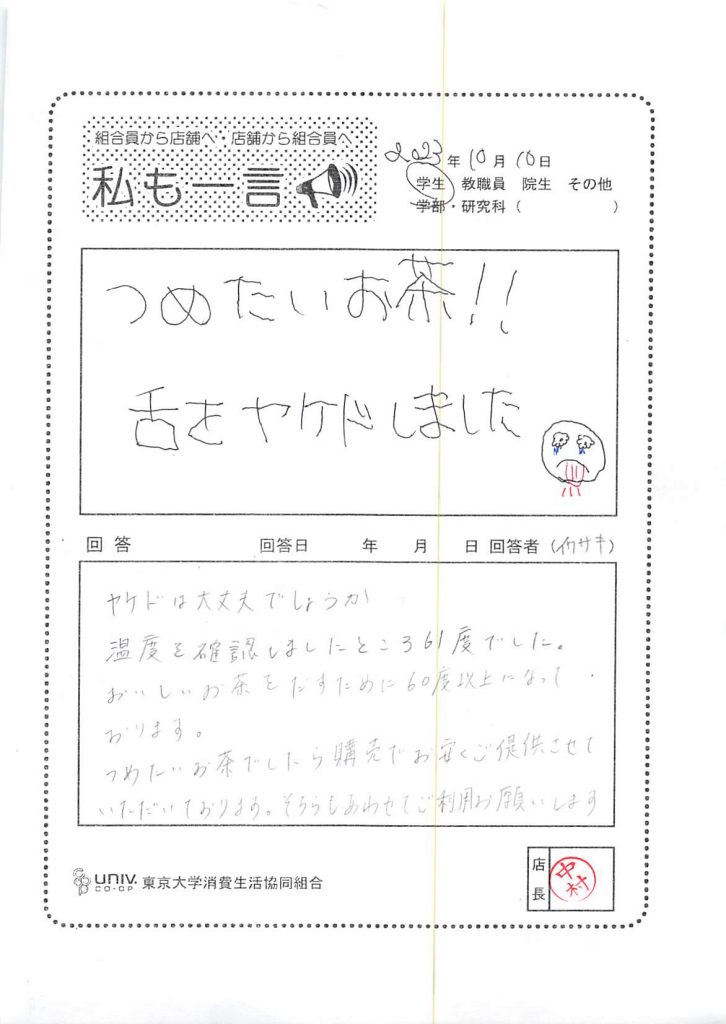 組合員から店舗へ・店舗から組合員へ
私も一言
2023年10月10日
学生 教職員 院生 その他
学部・研究科（ ）
つめたいお茶!!
舌をヤケドしました
回答 回答日 年 月 日 回答者（イワサキ）
ヤケドは大丈夫でしょうか
温度を確認しましたところ61度でした。
おいしいお茶をだすために60度以上になって
おります。
つめたいお茶でしたら購売でお安くご提供させて
いただいております。そちらもあわせてご利用お願いします
UNIV. CO-OP 東京大学消費生活協同組合
店長 中村